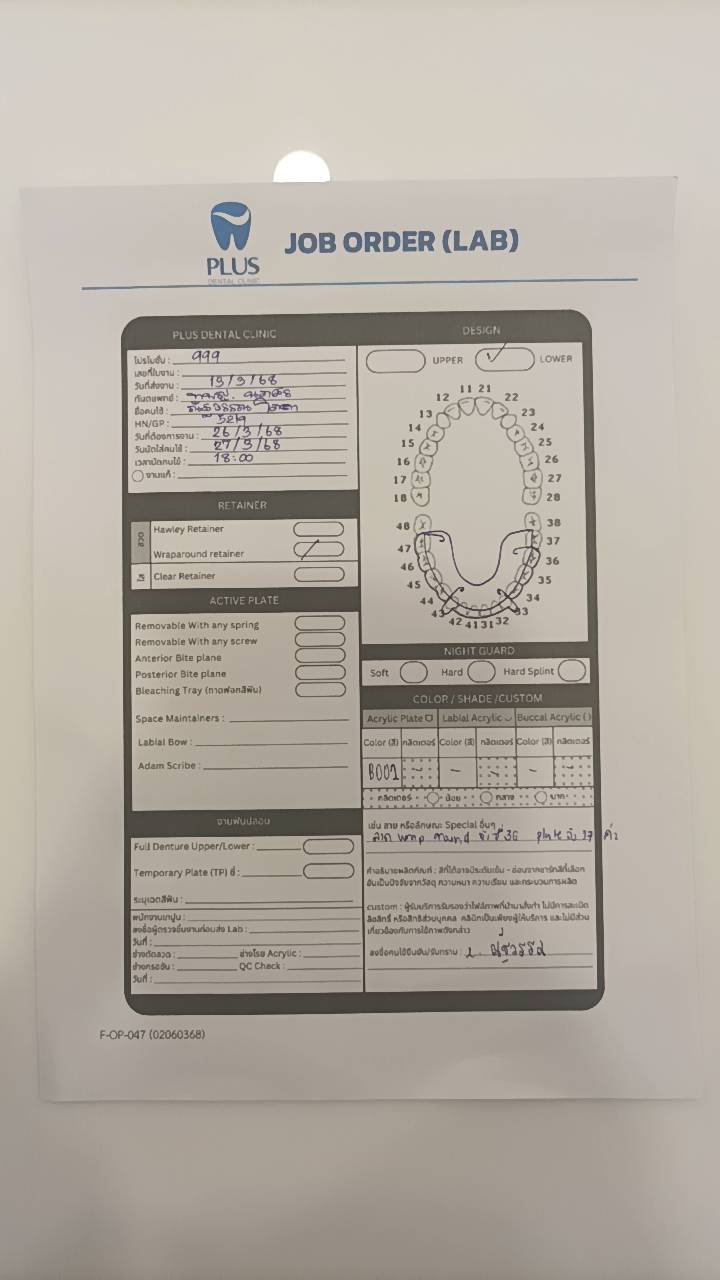 PLUS
DENTAL CLINIC
JOB ORDER (LAB)
PLUS DENTAL CLINIC
โปรโมชั่น : 999
เลขที่ใบงาน :
วันที่ส่งงาน : 19/3/68
ทันตแพทย์ :
ชื่อคนไข้ :
HN/GP : 5219
วันที่ต้องการงาน : 26/3/68
วันนัดใส่คนไข้ : 27/3/68
เวลานัดคนไข้ : 18:00
งานแก้ :
RETAINER
ลวด
Hawley Retainer
Wraparound retainer
ใส
Clear Retainer
ACTIVE PLATE
Removable With any spring
Removable With any screw
Anterior Bite plane
Posterior Bite plane
Bleaching Tray (ถาดฟอกสีฟัน)
Space Maintainers :
Labial Bow :
Adam Scribe :
งานฟันปลอม
Full Denture Upper/Lower :
Temporary Plate (TP) ซี่ :
ระบุเฉดสีฟัน :
พนักงานเทปูน :
ลงชื่อผู้ตรวจชิ้นงานก่อนส่ง Lab :
วันที่ :
ช่างดัดลวด : ช่างโรย Acrylic :
ช่างกรอขัด : QC Check :
วันที่ :
DESIGN
UPPER LOWER
11 21
12 22
13 23
14 24
15 25
16 26
17 27
18 28
48 38
47 37
46 36
45 35
44 34
43 33
42 41 31 32
NIGHT GUARD
Soft Hard Hard Splint
COLOR / SHADE /CUSTOM
Acrylic Plate Labial Acrylic Buccal Acrylic ( )
Color (สี) กลิตเตอร์ Color (สี) กลิตเตอร์ Color (สี) กลิตเตอร์
B001 - - - - -
กลิตเตอร์ น้อย กลาง มาก
เช่น ลาย หรือลักษณะ Special อื่นๆ
ลวด wrap around ซี่ 36 plate ถึง 37 ค่ะ
คำอธิบายผลิตภัณฑ์ : สีที่ได้อาจมีระดับเข้ม - อ่อนจากชาร์ทสีที่เลือก
อันเป็นปัจจัยจากวัสดุ ความหนา ความเรียบ และกระบวนการผลิต
custom : ผู้รับบริการรับรองว่าไฟล์ภาพที่นำมาสั่งทำ ไม่มีการละเมิด
ลิขสิทธิ์ หรือสิทธิส่วนบุคคล คลินิกเป็นเพียงผู้ให้บริการ และไม่มีส่วน
เกี่ยวข้องกับการใช้ภาพดังกล่าว
ลงชื่อคนไข้ยืนยัน/รับทราบ :
F-OP-047 (02060368)